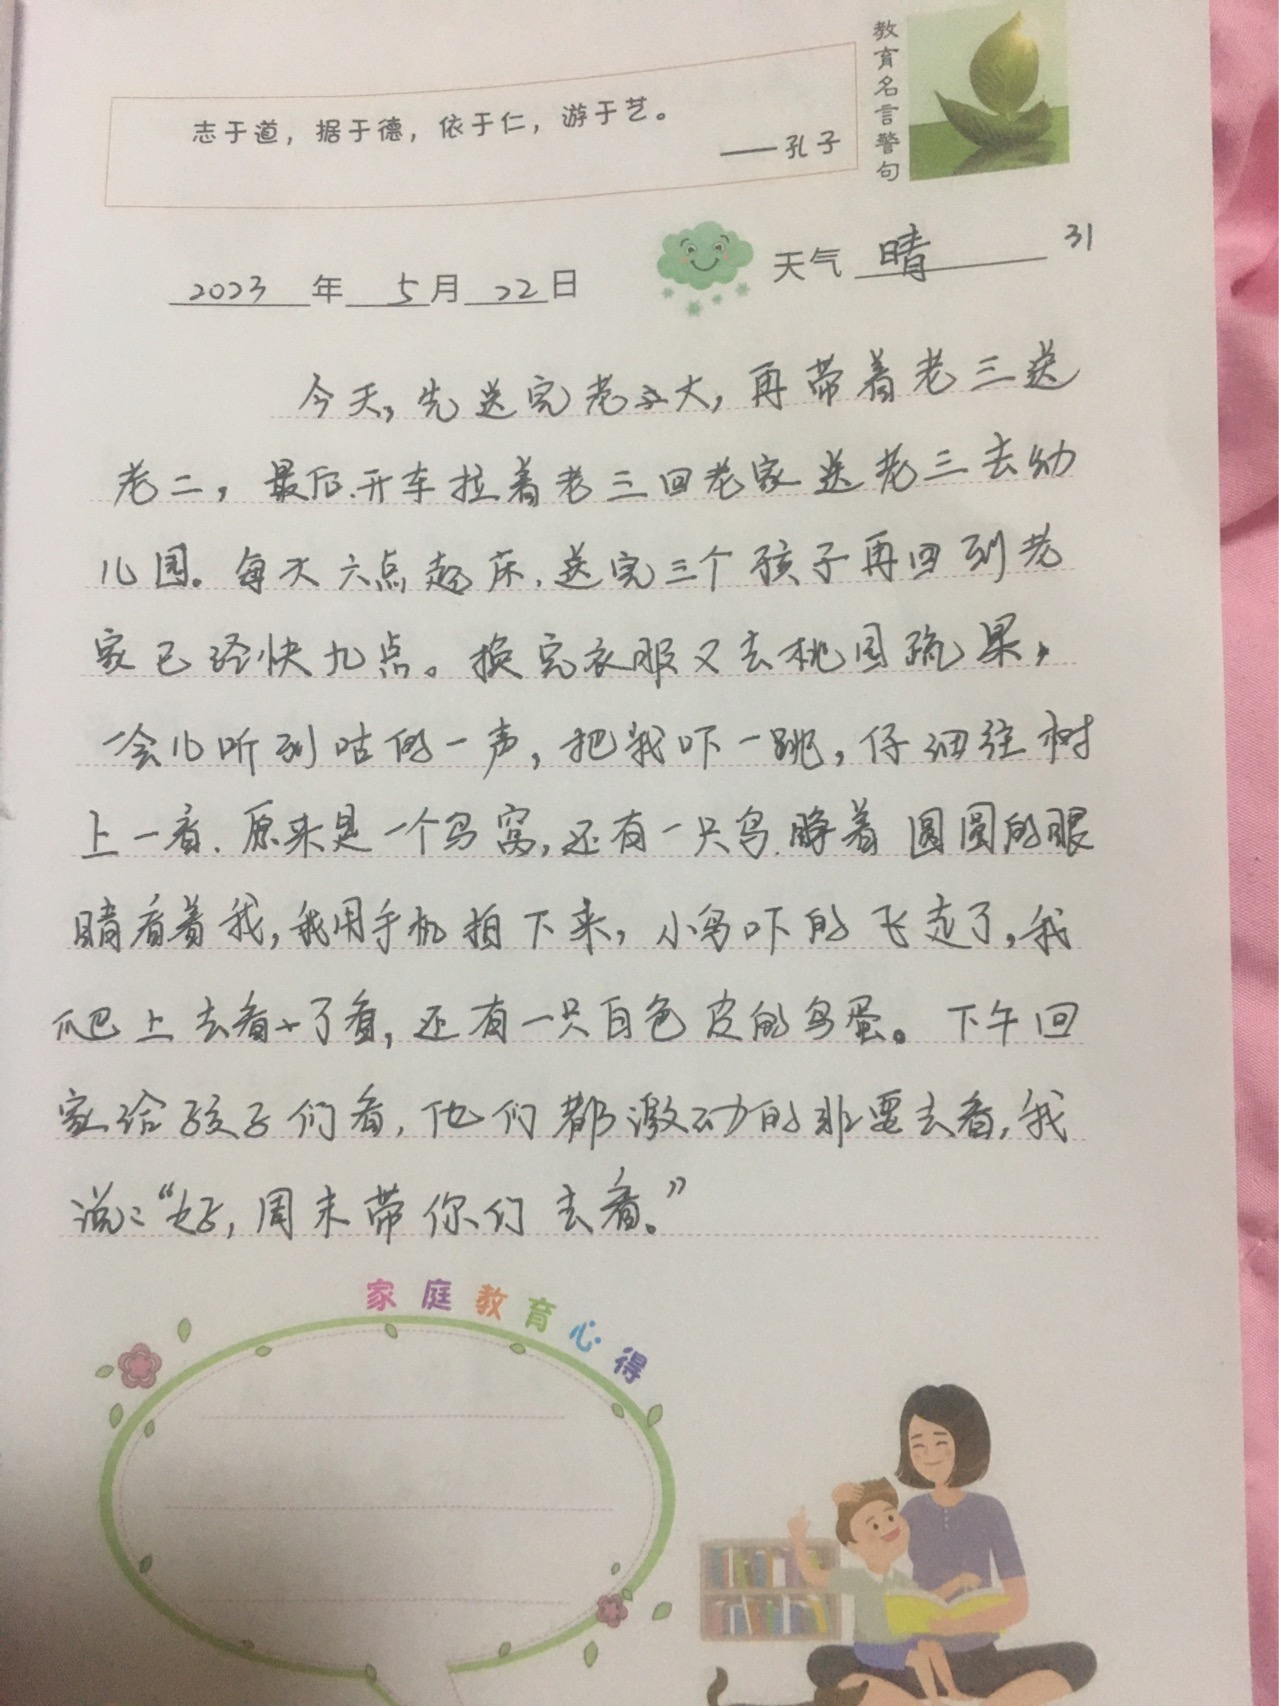 教育名言警句
志于道，据于德，依于仁，游于艺。
——孔子
31
2023年5月22日 天气 晴
今天，先送完老大，再带着老三送
老二，最后.开车拉着老三回老家送老三去幼
儿园。每天六点起床.送完三个孩子再回到老
家已经快九点。换完衣服又去桃园疏果，
一会儿听到咕的一声，把我吓一跳，仔细往树
上一看.原来是一个鸟窝，还有一只鸟.睁着圆圆的眼
睛看着我，我用手机拍下来，小鸟吓的飞走了，我
爬上去看了看，还有一只白色皮的鸟蛋。下午回
家给孩子们看，他们都激动的非要去看，我
说：“好，周末带你们去看。”
家庭教育心得